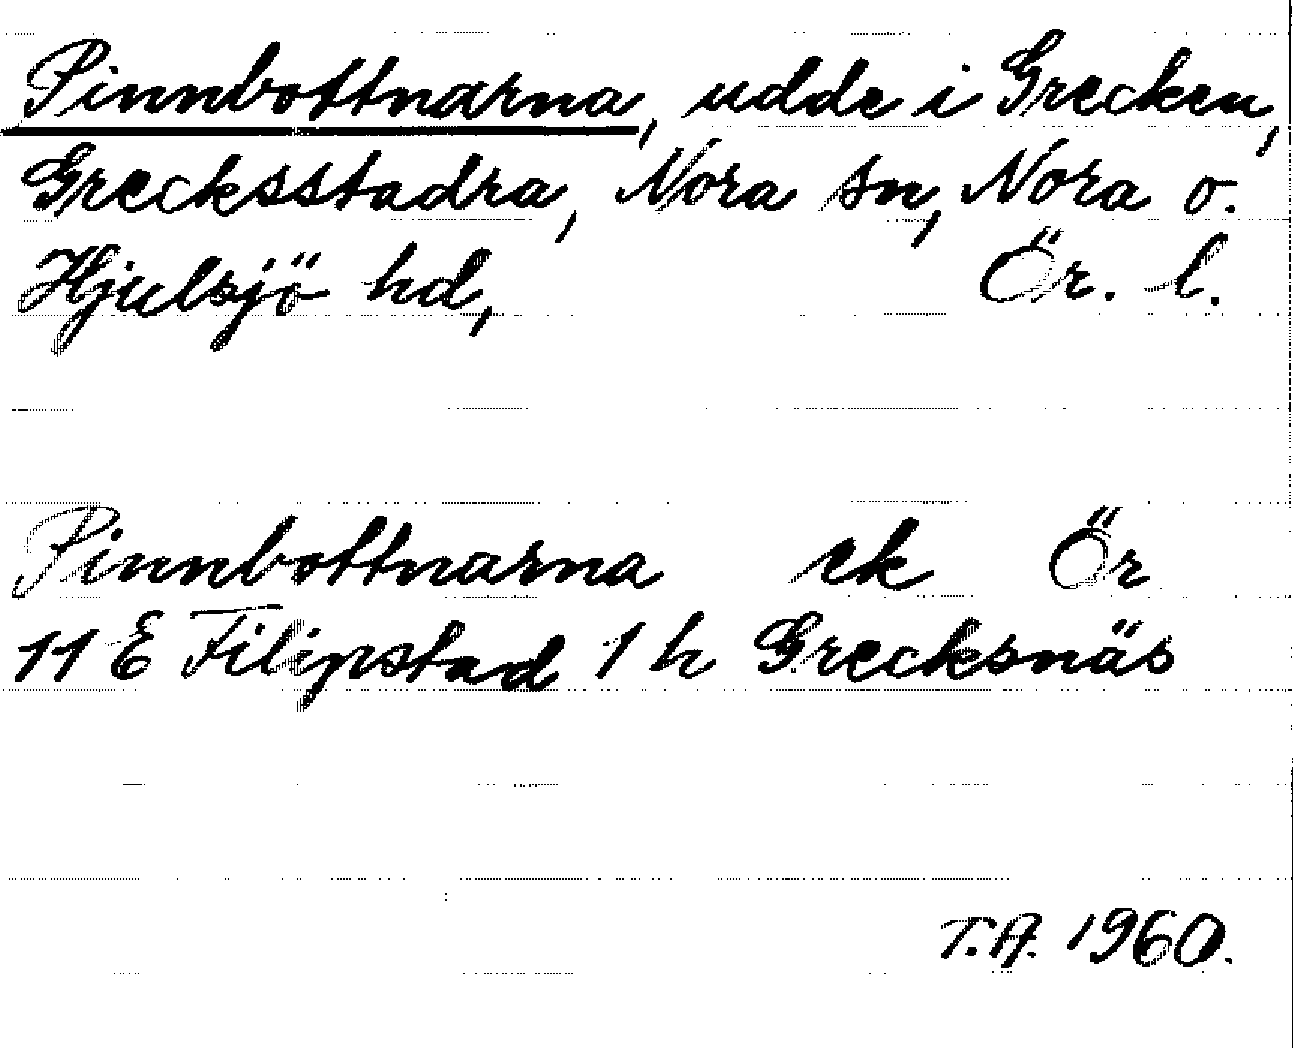 Pinnbottnarna, udde i Grecken,
Grecksstadra, Nora sn, Nora o.
Hjulsjö hd, Ör. l.
Pinnbottnarna ek Ör
11 E Filipstad 1 h Grecksnäs
T.A. 1960.